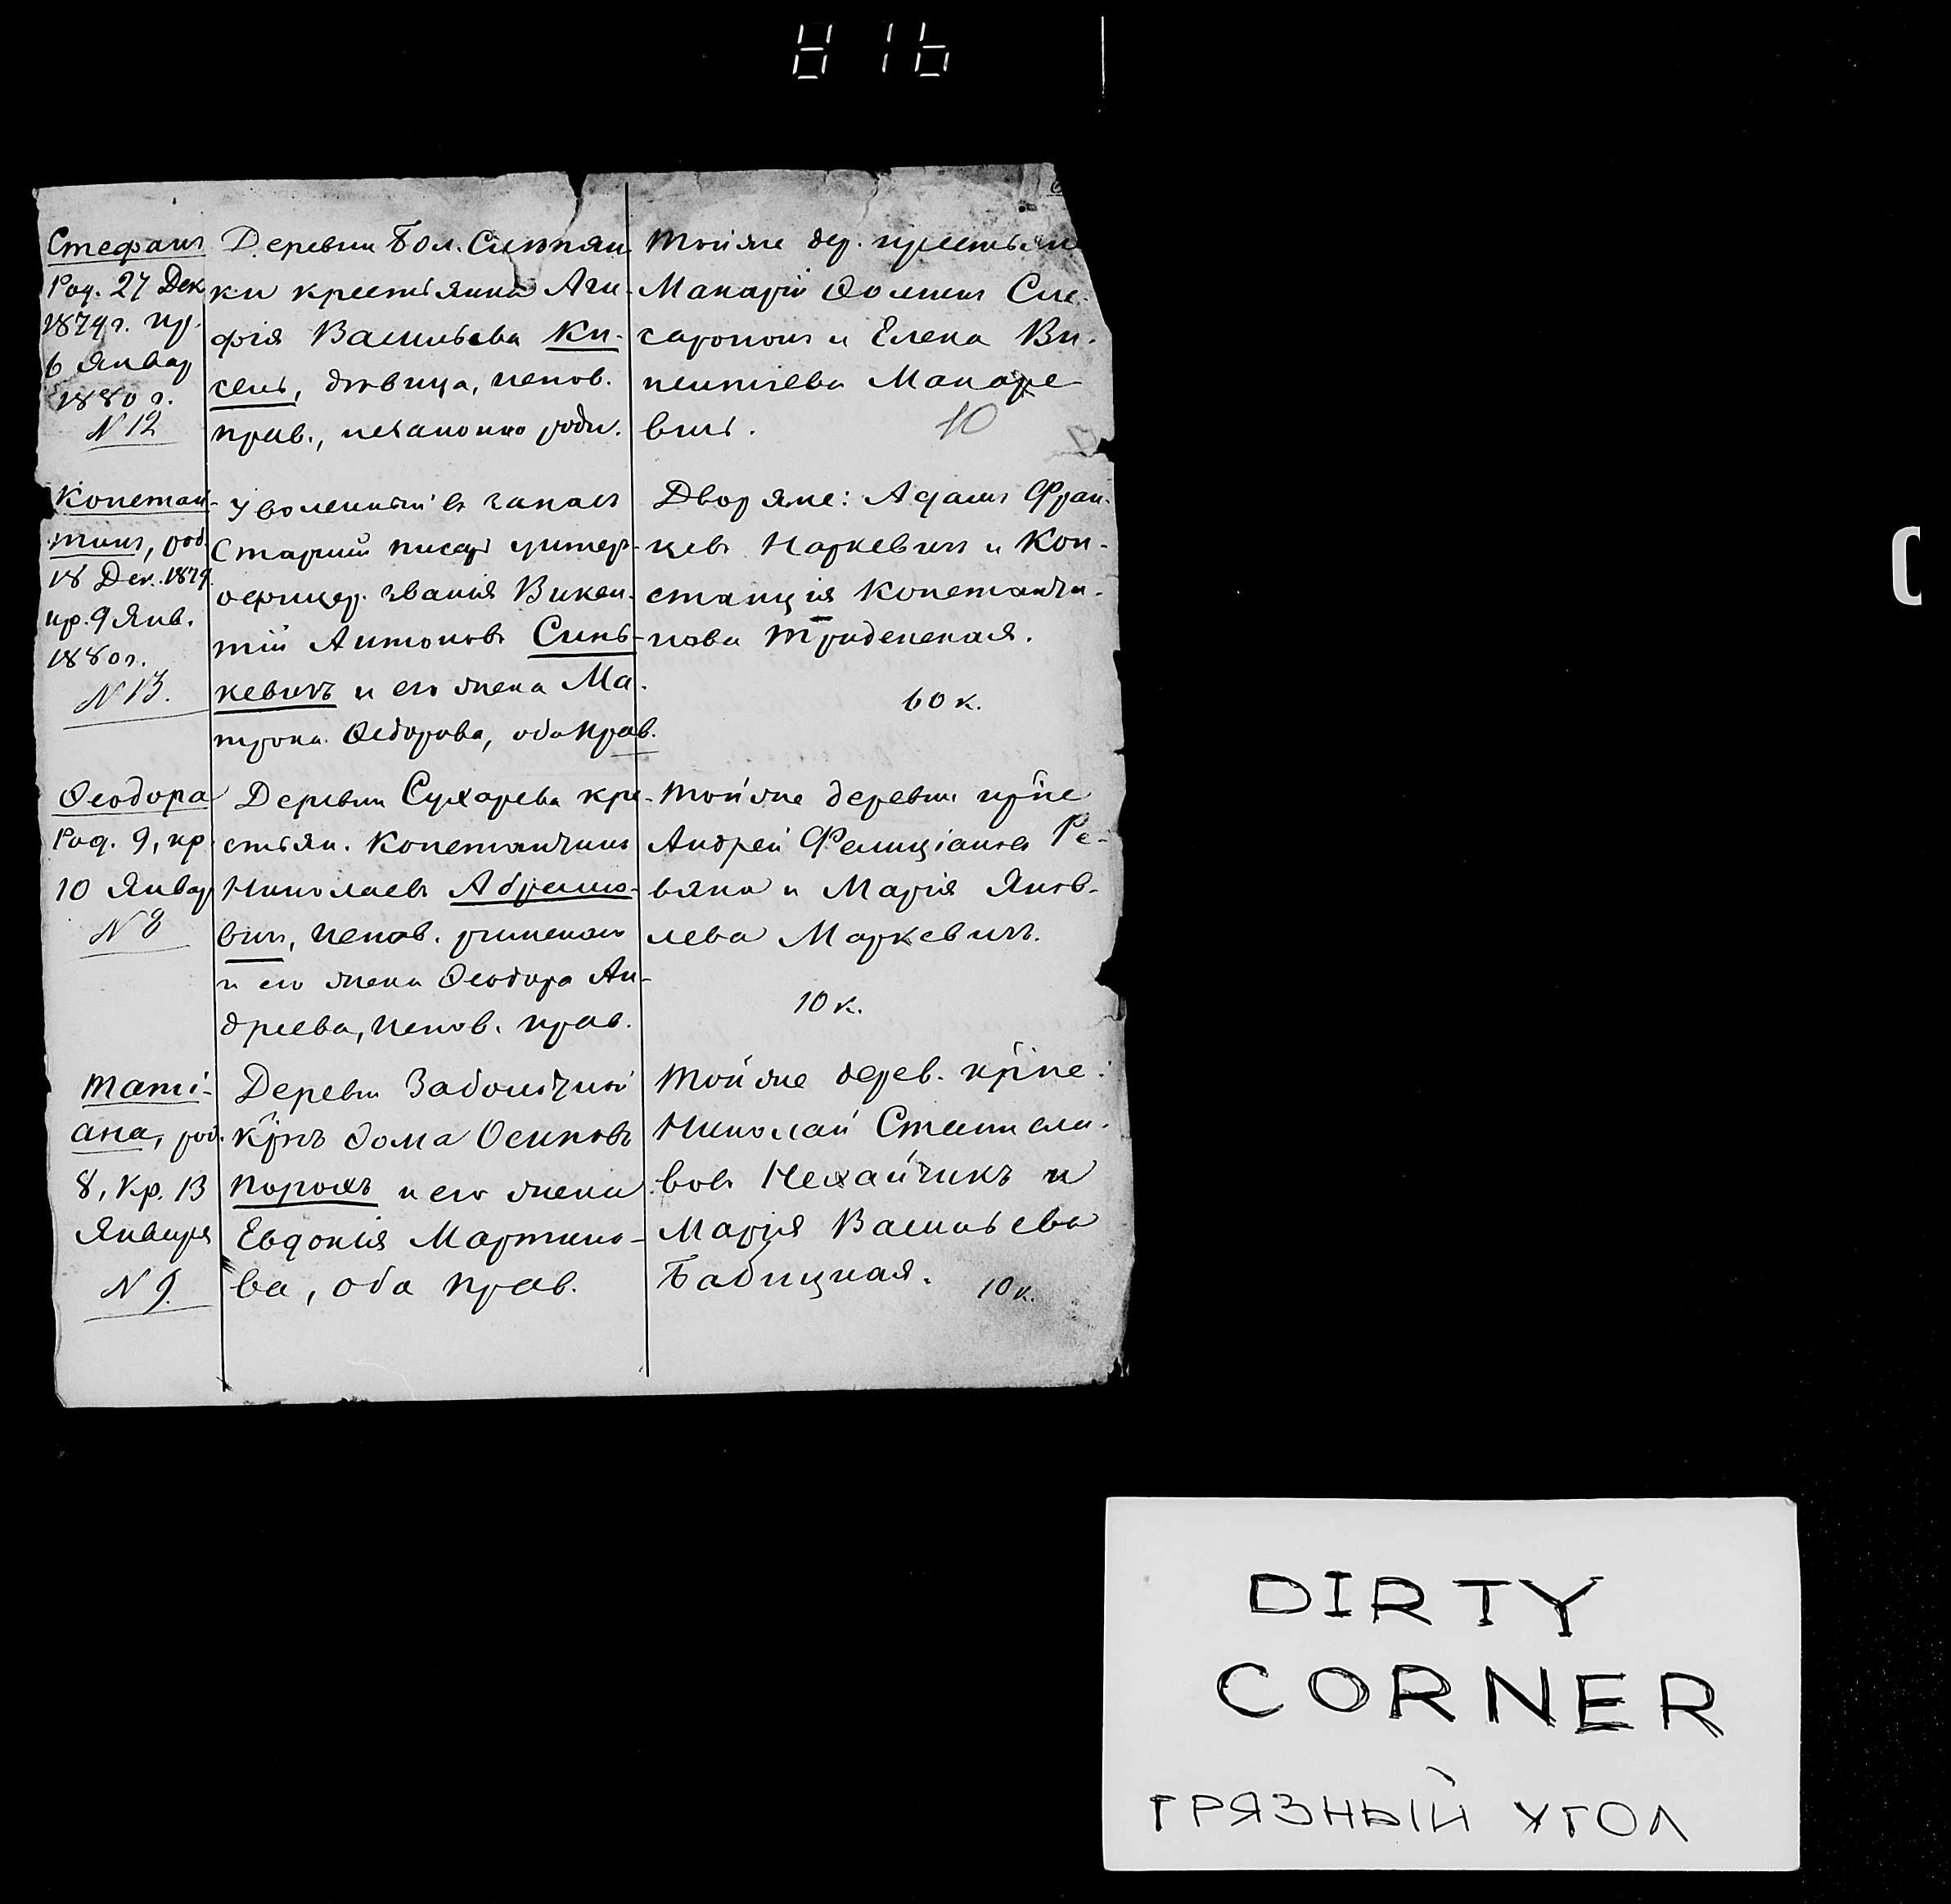 816
Стефанъ
Род. 27 Дек
1879 г. кр.
6 Январ
1880 г.
N 12
Деревни Бол. Слѣпян-
ки крестьянка Ага-
фія Васильева Ки-
сель, дѣвица, испов.
прав., незаконно роди.
Тойже дер. крестьян
Макарій Фоминъ Сле-
саронокъ и Елена Ви-
кентіева Макаре-
вичъ.
10
Констан-
тинъ, род.
18 Дек. 1879
кр. 9 Янв.
1880 г.
N 13.
Уволенный въ запасъ
Старшій писарь унтеръ-
офицер. званія Викен-
тій Антоновъ Синь-
кевичъ и его жена Ма-
трона Ѳедорова, оба прав.
Дворяне: Адамъ Фран-
цевъ Наркевичъ и Кон-
станція Константи-
нова
60 к.
Ѳеодора
Род. 9, кр
10 Январ
N 8
Деревни Сухарева кре-
стьян. Константинъ
Николаевъ Абрамо-
вичъ, испов. римскаго
и его жена Ѳеодора Ан-
дреева, испов. прав.
Тойже деревни крне
Андрей Фелиціановъ Ре-
вяко и Марія Яков-
лева Маркевичъ.
10 к.
Таті-
ана, род.
8, кр. 13
Января
N 9.
Деревн Заболотной
крнъ Ѳома Осиповъ
Порохъ и его жена
Евдокія Мартино-
ва, оба прав.
Тойже дерев. крне:
Николай Станисла-
вовъ Нехайчикъ и
Марія Васильева
Бабицкая.
10 к.
DIRTY
CORNER
ГРЯЗНЫЙ УГОЛ